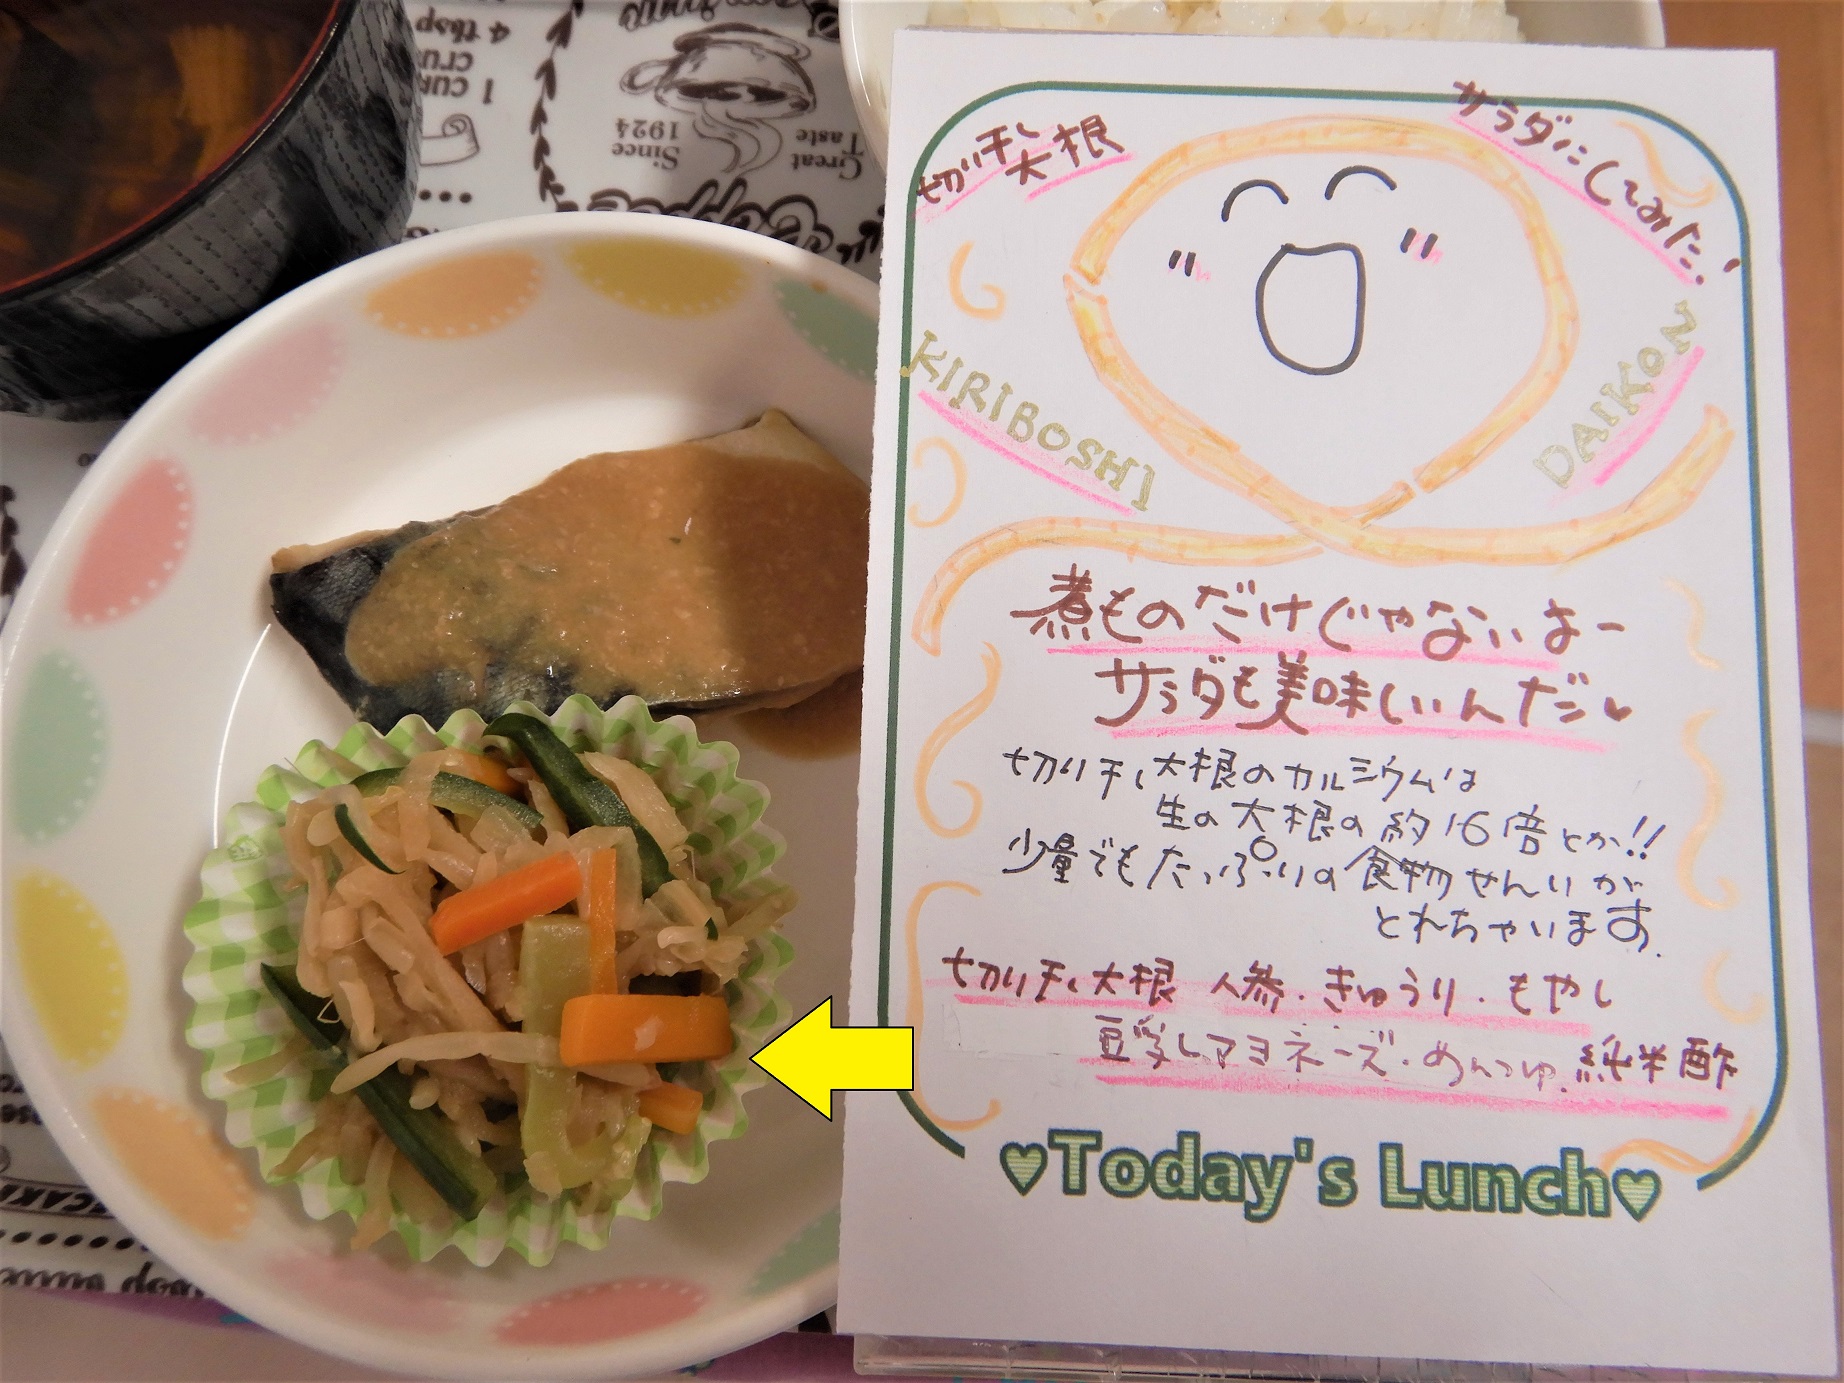 切り干し大根
サラダにしてみた!
KIRIBOSHI
DAIKON
煮ものだけじゃないよー
サラダも美味しいんだ♥
切り干し大根のカルシウムは
生の大根の約16倍とか!!
少量でもたっぷりの食物せんいが
とれちゃいます。
切り干し大根 人参・きゅうり・もやし
豆乳マヨネーズ・めんつゆ・純米酢
♥Today's Lunch♥
4 tbsp
1 cup
Since
1924
Great
Taste